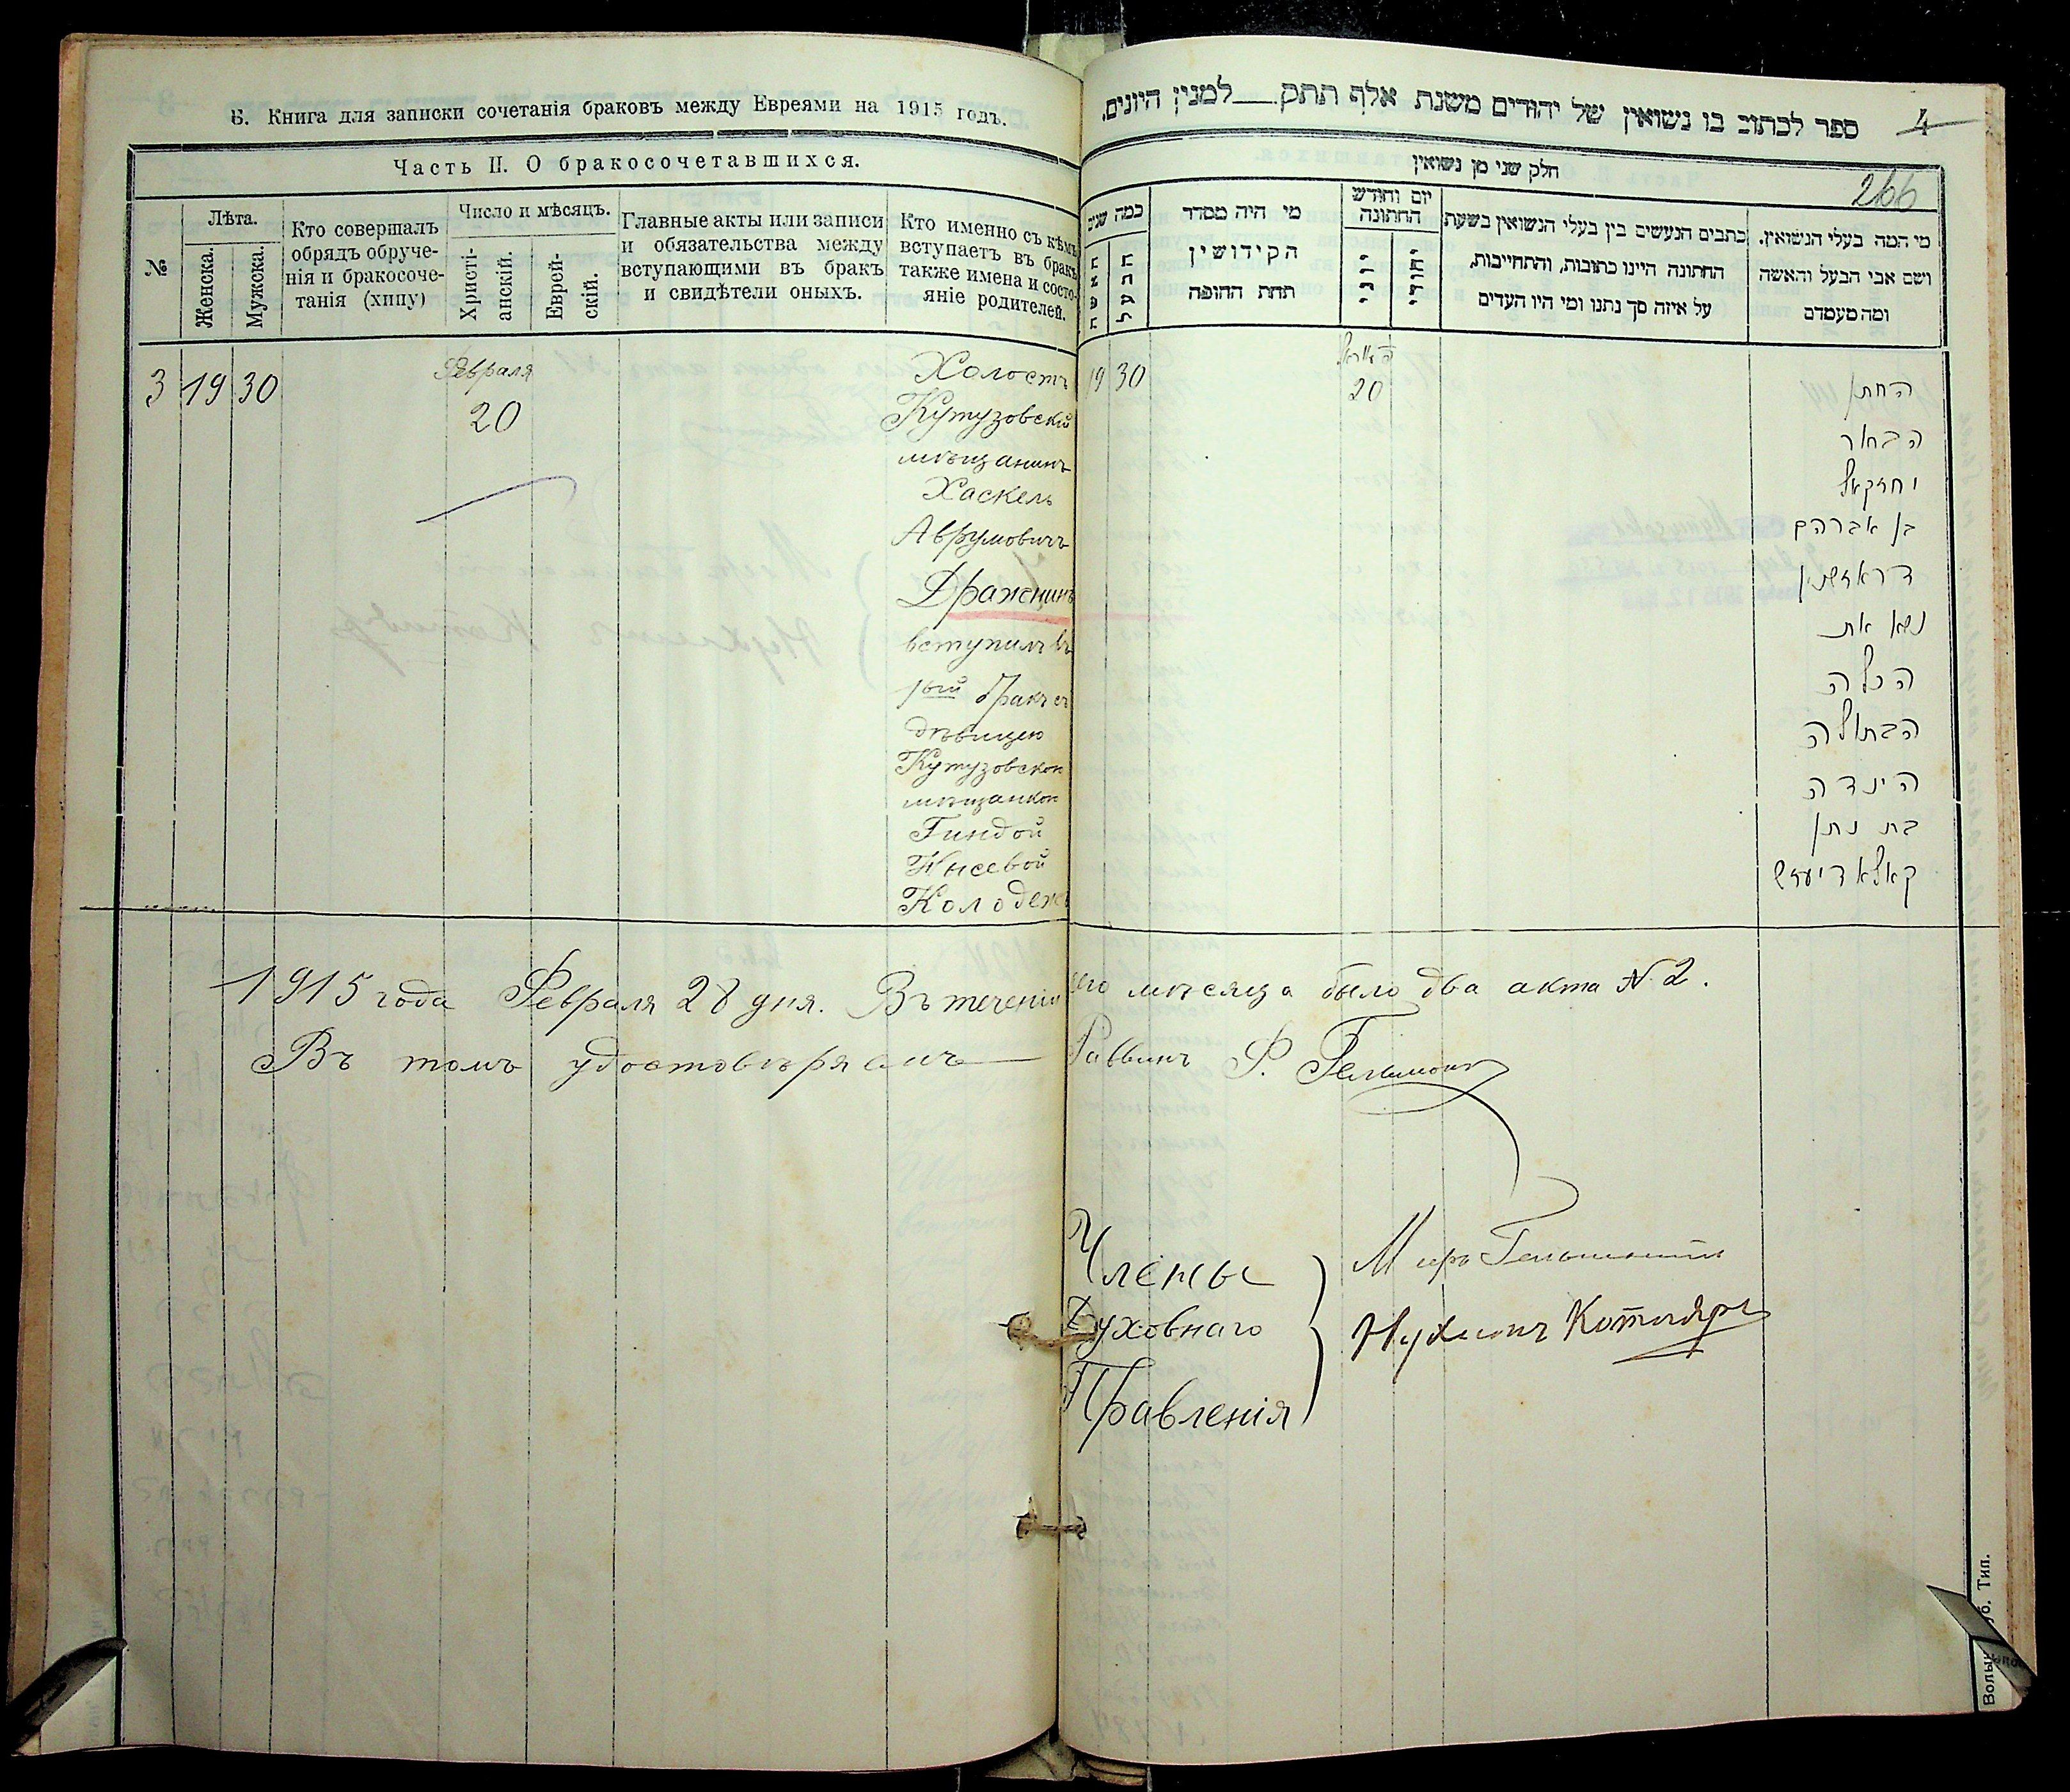 Б. Книга для записки сочетанія браковъ между Евреями на 1915 годъ.
Часть II. О бракосочетавшихся.
№
Лѣта.
Женска.
Мужска.
Кто совершалъ
обрядъ обруче-
нія и бракосоче-
танія (хипу)
Число и мѣсяцъ.
Христі-
анскій.
Еврей-
скій.
Главные акты или записи
и обязательства между
вступающими въ бракъ
и свидѣтели оныхъ.
Кто именно съ кѣмъ
вступаетъ въ бракъ
также имена и состо-
яніе родителей.
3 19 30
Февраля
20
Холостъ
Кутузовскій
мѣщанинъ
Хаскель
Аврумовичъ
Драженинъ
вступилъ въ
1ый бракъ съ
дѣвицею
Кутузовской
мѣщанкой
Гиндой
Нысевой
Колодежъ
ספר לכתוב בו נשואין של יהודים משנת אלף תתק למנין היונים.
4
חלק שני מן נשואין
266
כמה שנים
האשה
הבעל
מי היה מסדר
הקידושין
תחת החופה
יום וחודש
החתונה
יוני
יהודי
כתבים הנעשים בין בעלי הנשואין בשעת
החתונה היינו כתובות, והתחייבות,
על איזה סך נתנו ומי היו העדים
מי המה בעלי הנשואין.
ושם אבי הבעל והאשה
ומה מעמדם
19 30
20
החתן
הבחור
יחזקאל
בן אברהם
נשא את
הכלה
הבתולה
הינדה
בת נתן
קאלאדיעזש
1915 года Февраля 28 дня. Въ теченіи сего мѣсяца было два акта № 2.
Въ томъ удостовѣряемъ Раввинъ
Члены
Духовнаго
Правленія
Нухимъ Котляръ
Тип.